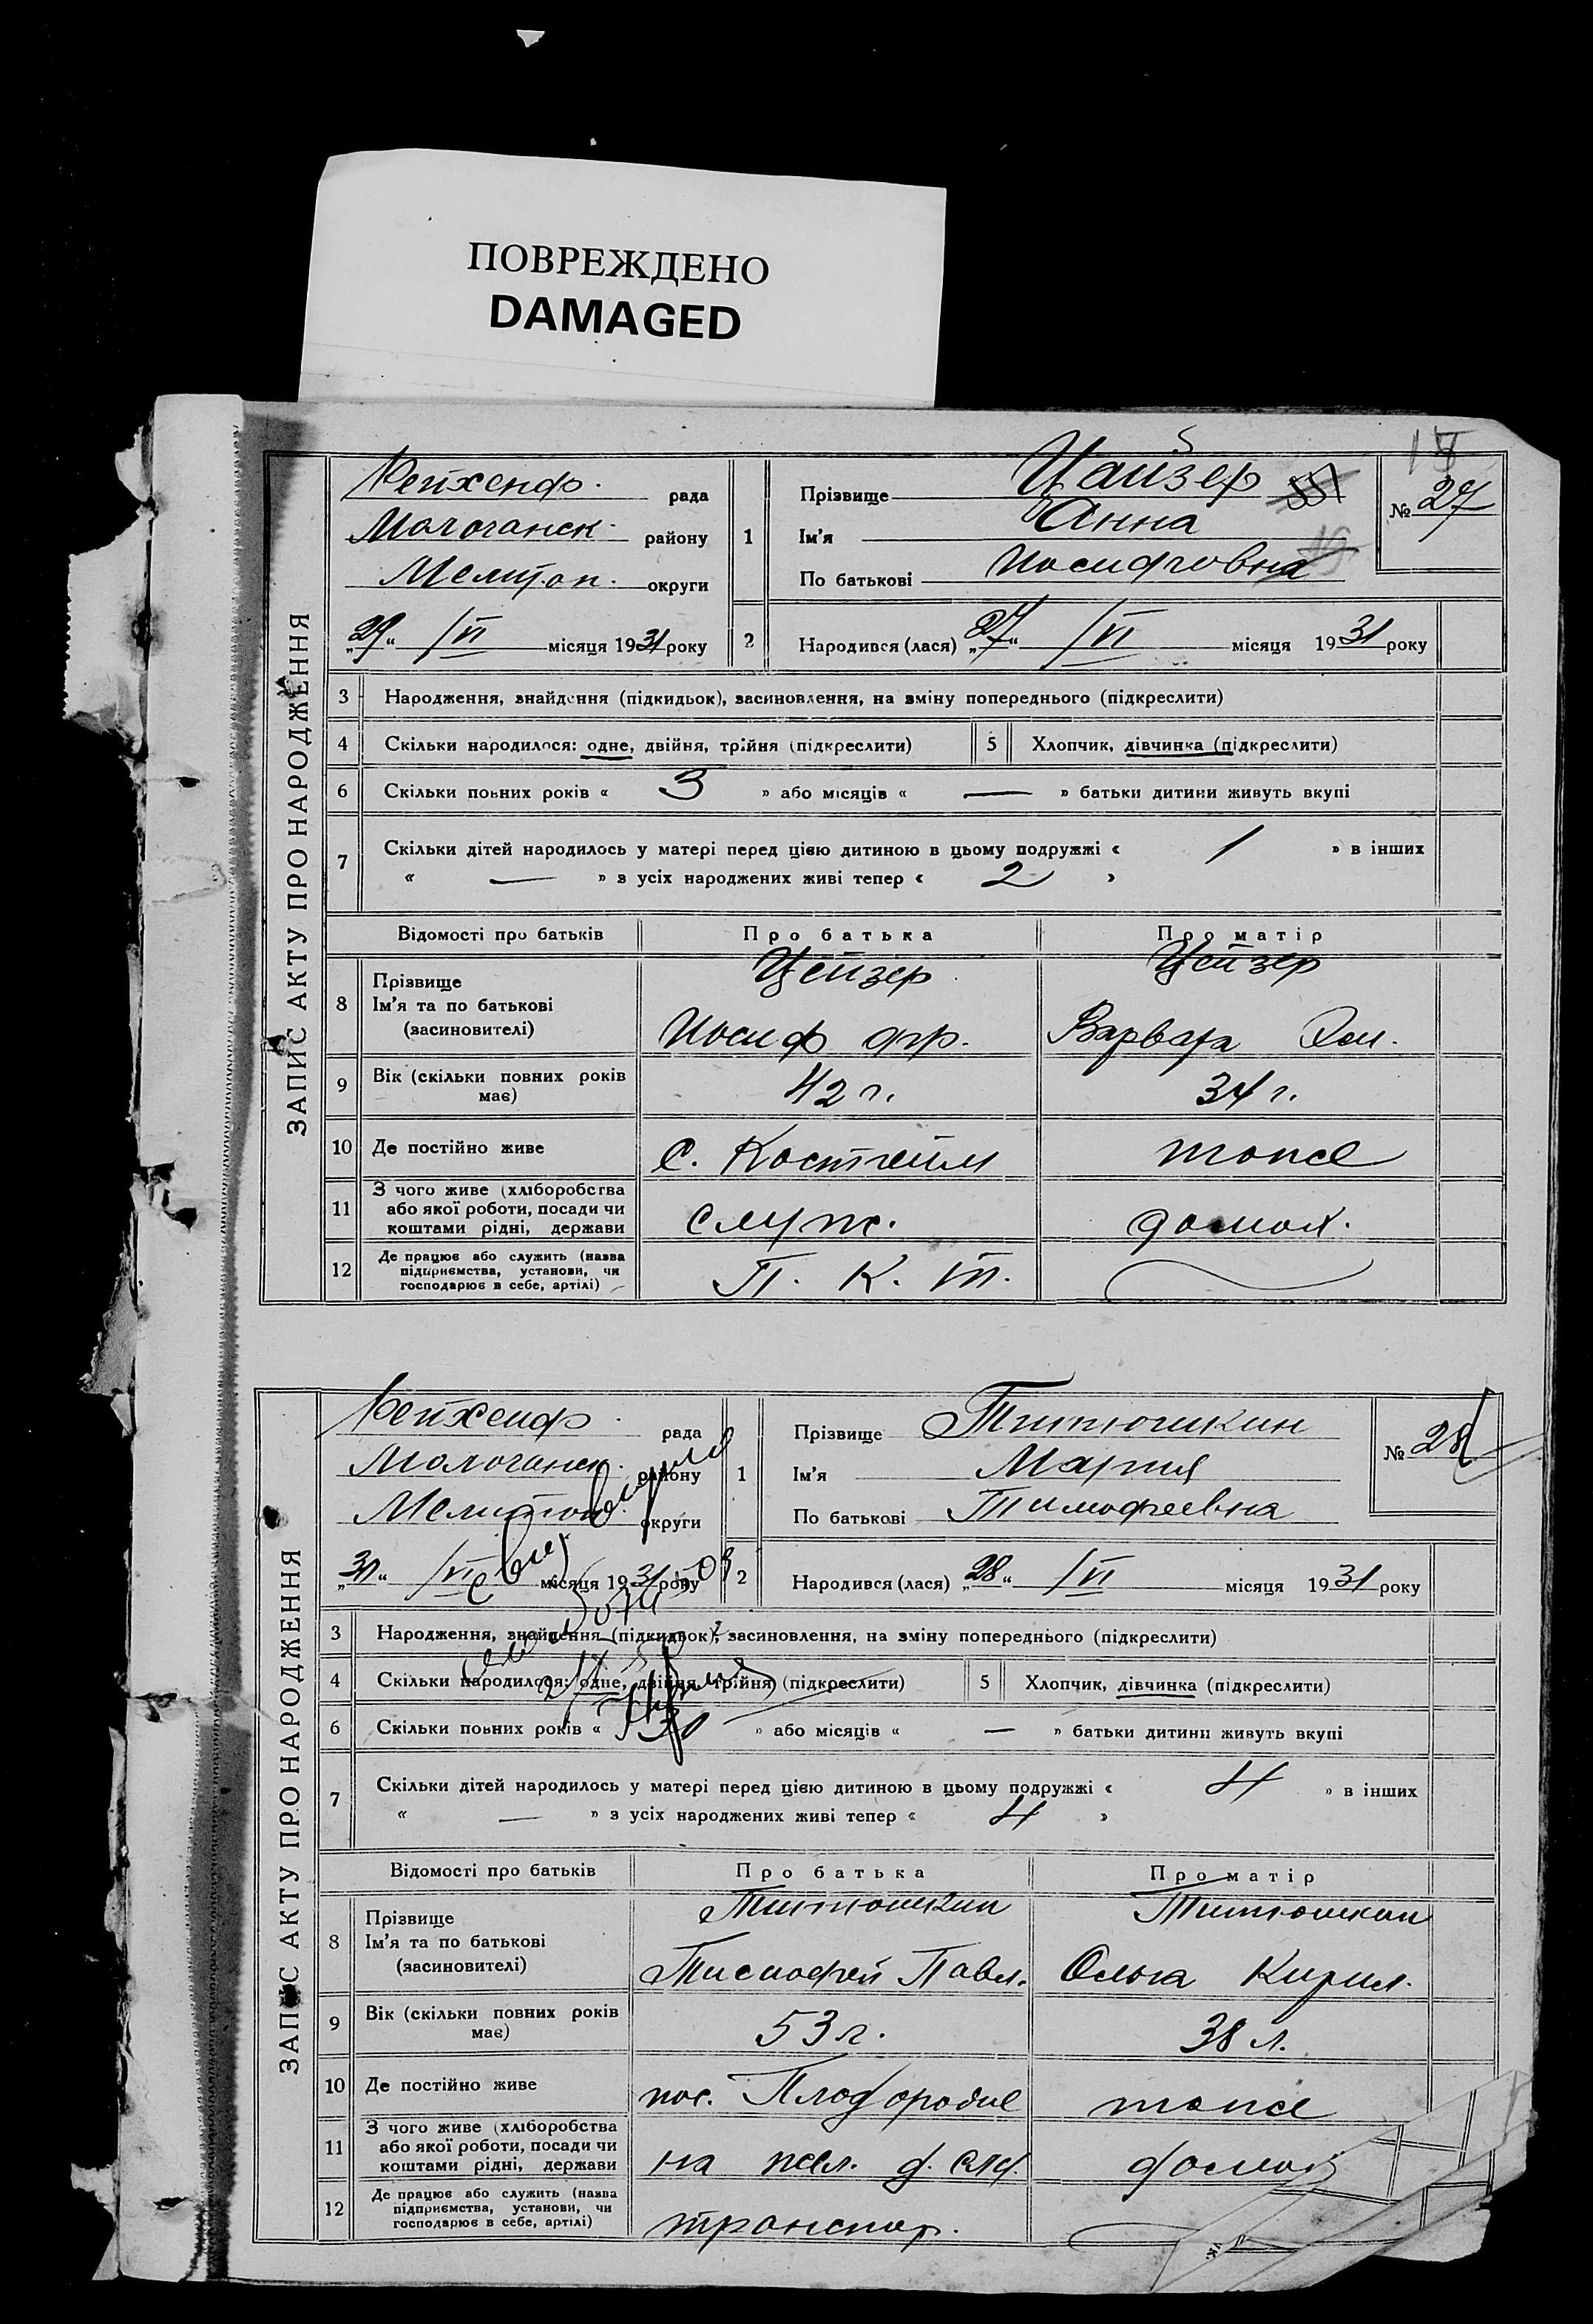 ПОВРЕЖДЕНО
DAMAGED
ЗАПИС АКТУ ПРО НАРОДЖЕННЯ
Рейхенф. рада
Молочанск. району
Мелитоп. округи
„29“ /VI місяця 1931 року
1
Прізвище Цайзер
Ім'я Анна
По батькові Иосифовна
№ 27
2 Народився (лася) „27“ /VI місяця 1931 року
3 Народження, знайдення (підкидьок), засиновлення, на зміну попереднього (підкреслити)
4 Скільки народилося: одне, двійня, трійня (підкреслити) 5 Хлопчик, дівчинка (підкреслити)
6 Скільки повних років « 3 » або місяців « — » батьки дитини живуть вкупі
7 Скільки дітей народилось у матері перед цією дитиною в цьому подружжі « 1 » в інших
« — » з усіх народжених живі тепер « 2 »
Відомості про батьків Про батька Про матір
8 Прізвище Цейзер Цейзер
Ім'я та по батькові
(засиновителі) Иосиф Варвара
9 Вік (скільки повних років має) 42 г. 34 г.
10 Де постійно живе с. Костгейм тоже
11 З чого живе (хліборобства
або якої роботи, посади чи служ. домох.
коштами рідні, держави
12 Де працює або служить (назва
підприємства, установи, чи П. К. Т.
господарює в себе, артілі)
ЗАПИС АКТУ ПРО НАРОДЖЕННЯ
Рейхенф. рада
Молочанск. району
Мелитоп. округи
„30“ /VI місяця 1931 року
1
Прізвище Титюшкин
Ім'я Мария
По батькові Тимофеевна
№ 28
2 Народився (лася) „28“ /VI місяця 1931 року
3 Народження, знайдення (підкидьок), засиновлення, на зміну попереднього (підкреслити)
4 Скільки народилося: одне, двійня, трійня (підкреслити) 5 Хлопчик, дівчинка (підкреслити)
6 Скільки повних років « » або місяців « — » батьки дитини живуть вкупі
7 Скільки дітей народилось у матері перед цією дитиною в цьому подружжі « 4 » в інших
« — » з усіх народжених живі тепер « 4 »
Відомості про батьків Про батька Про матір
8 Прізвище Титюшкин Титюшкин
Ім'я та по батькові
(засиновителі) Тимофей Павл. Ольга Кирил.
9 Вік (скільки повних років має) 53 г. 38 л.
10 Де постійно живе пос. Плодородие тоже
11 З чого живе (хліборобства
або якої роботи, посади чи на жел. д. служ. домох
коштами рідні, держави
12 Де працює або служить (назва
підприємства, установи, чи транспор.
господарює в себе, артілі)